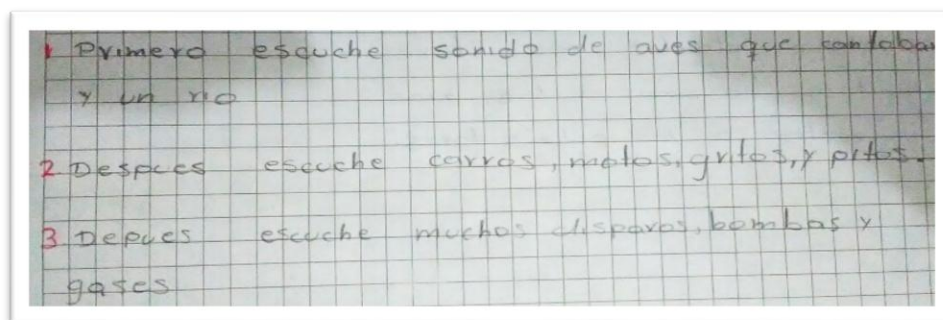 1 Primero escuche sonido de aves que cantaban
y un rio
2 Despues escuche carros, motos, gritos, y pitos.
3 Depues escuche muchos disparos, bombas y
gases